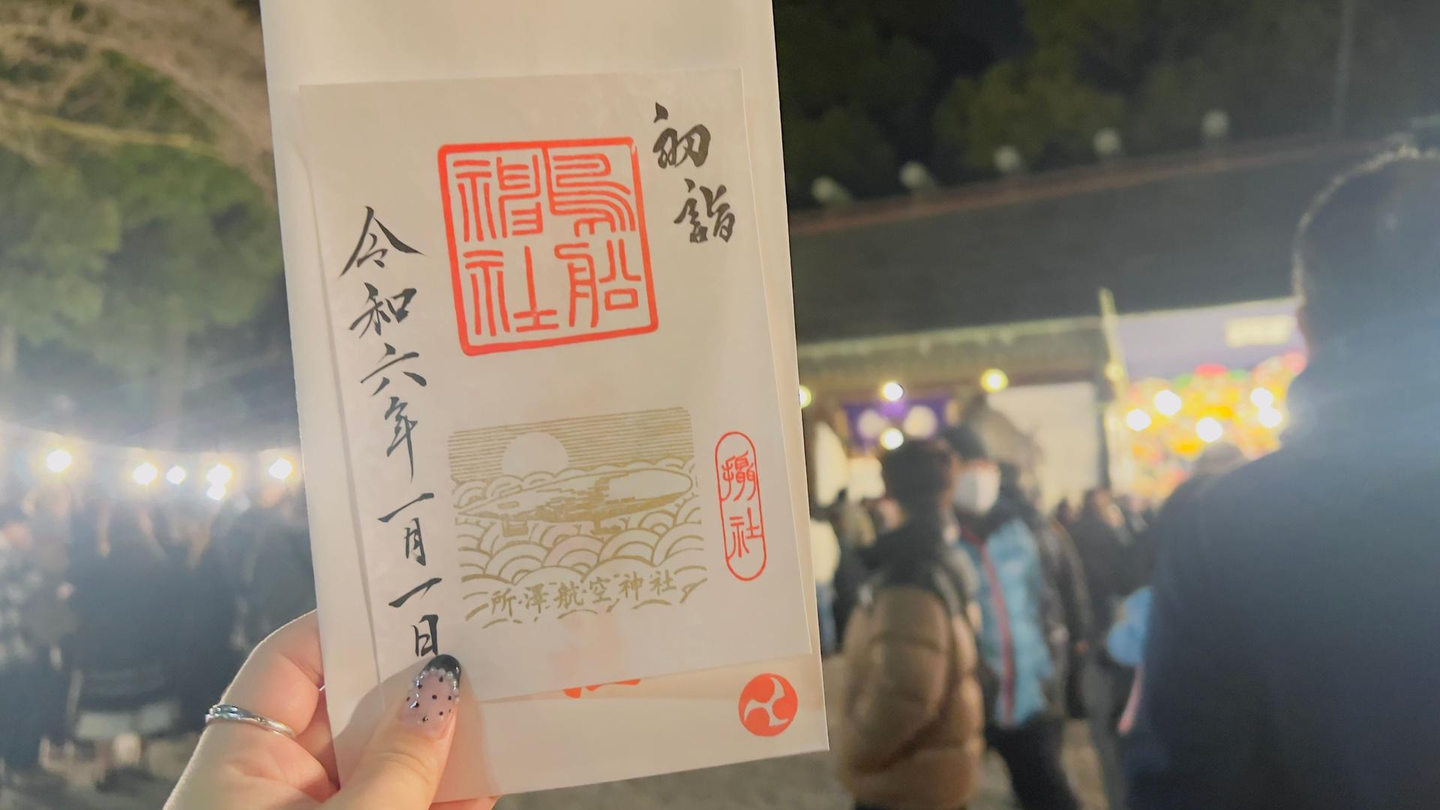 初詣
鳥船
神社
令和六年一月一日
所澤航空神社
攝社